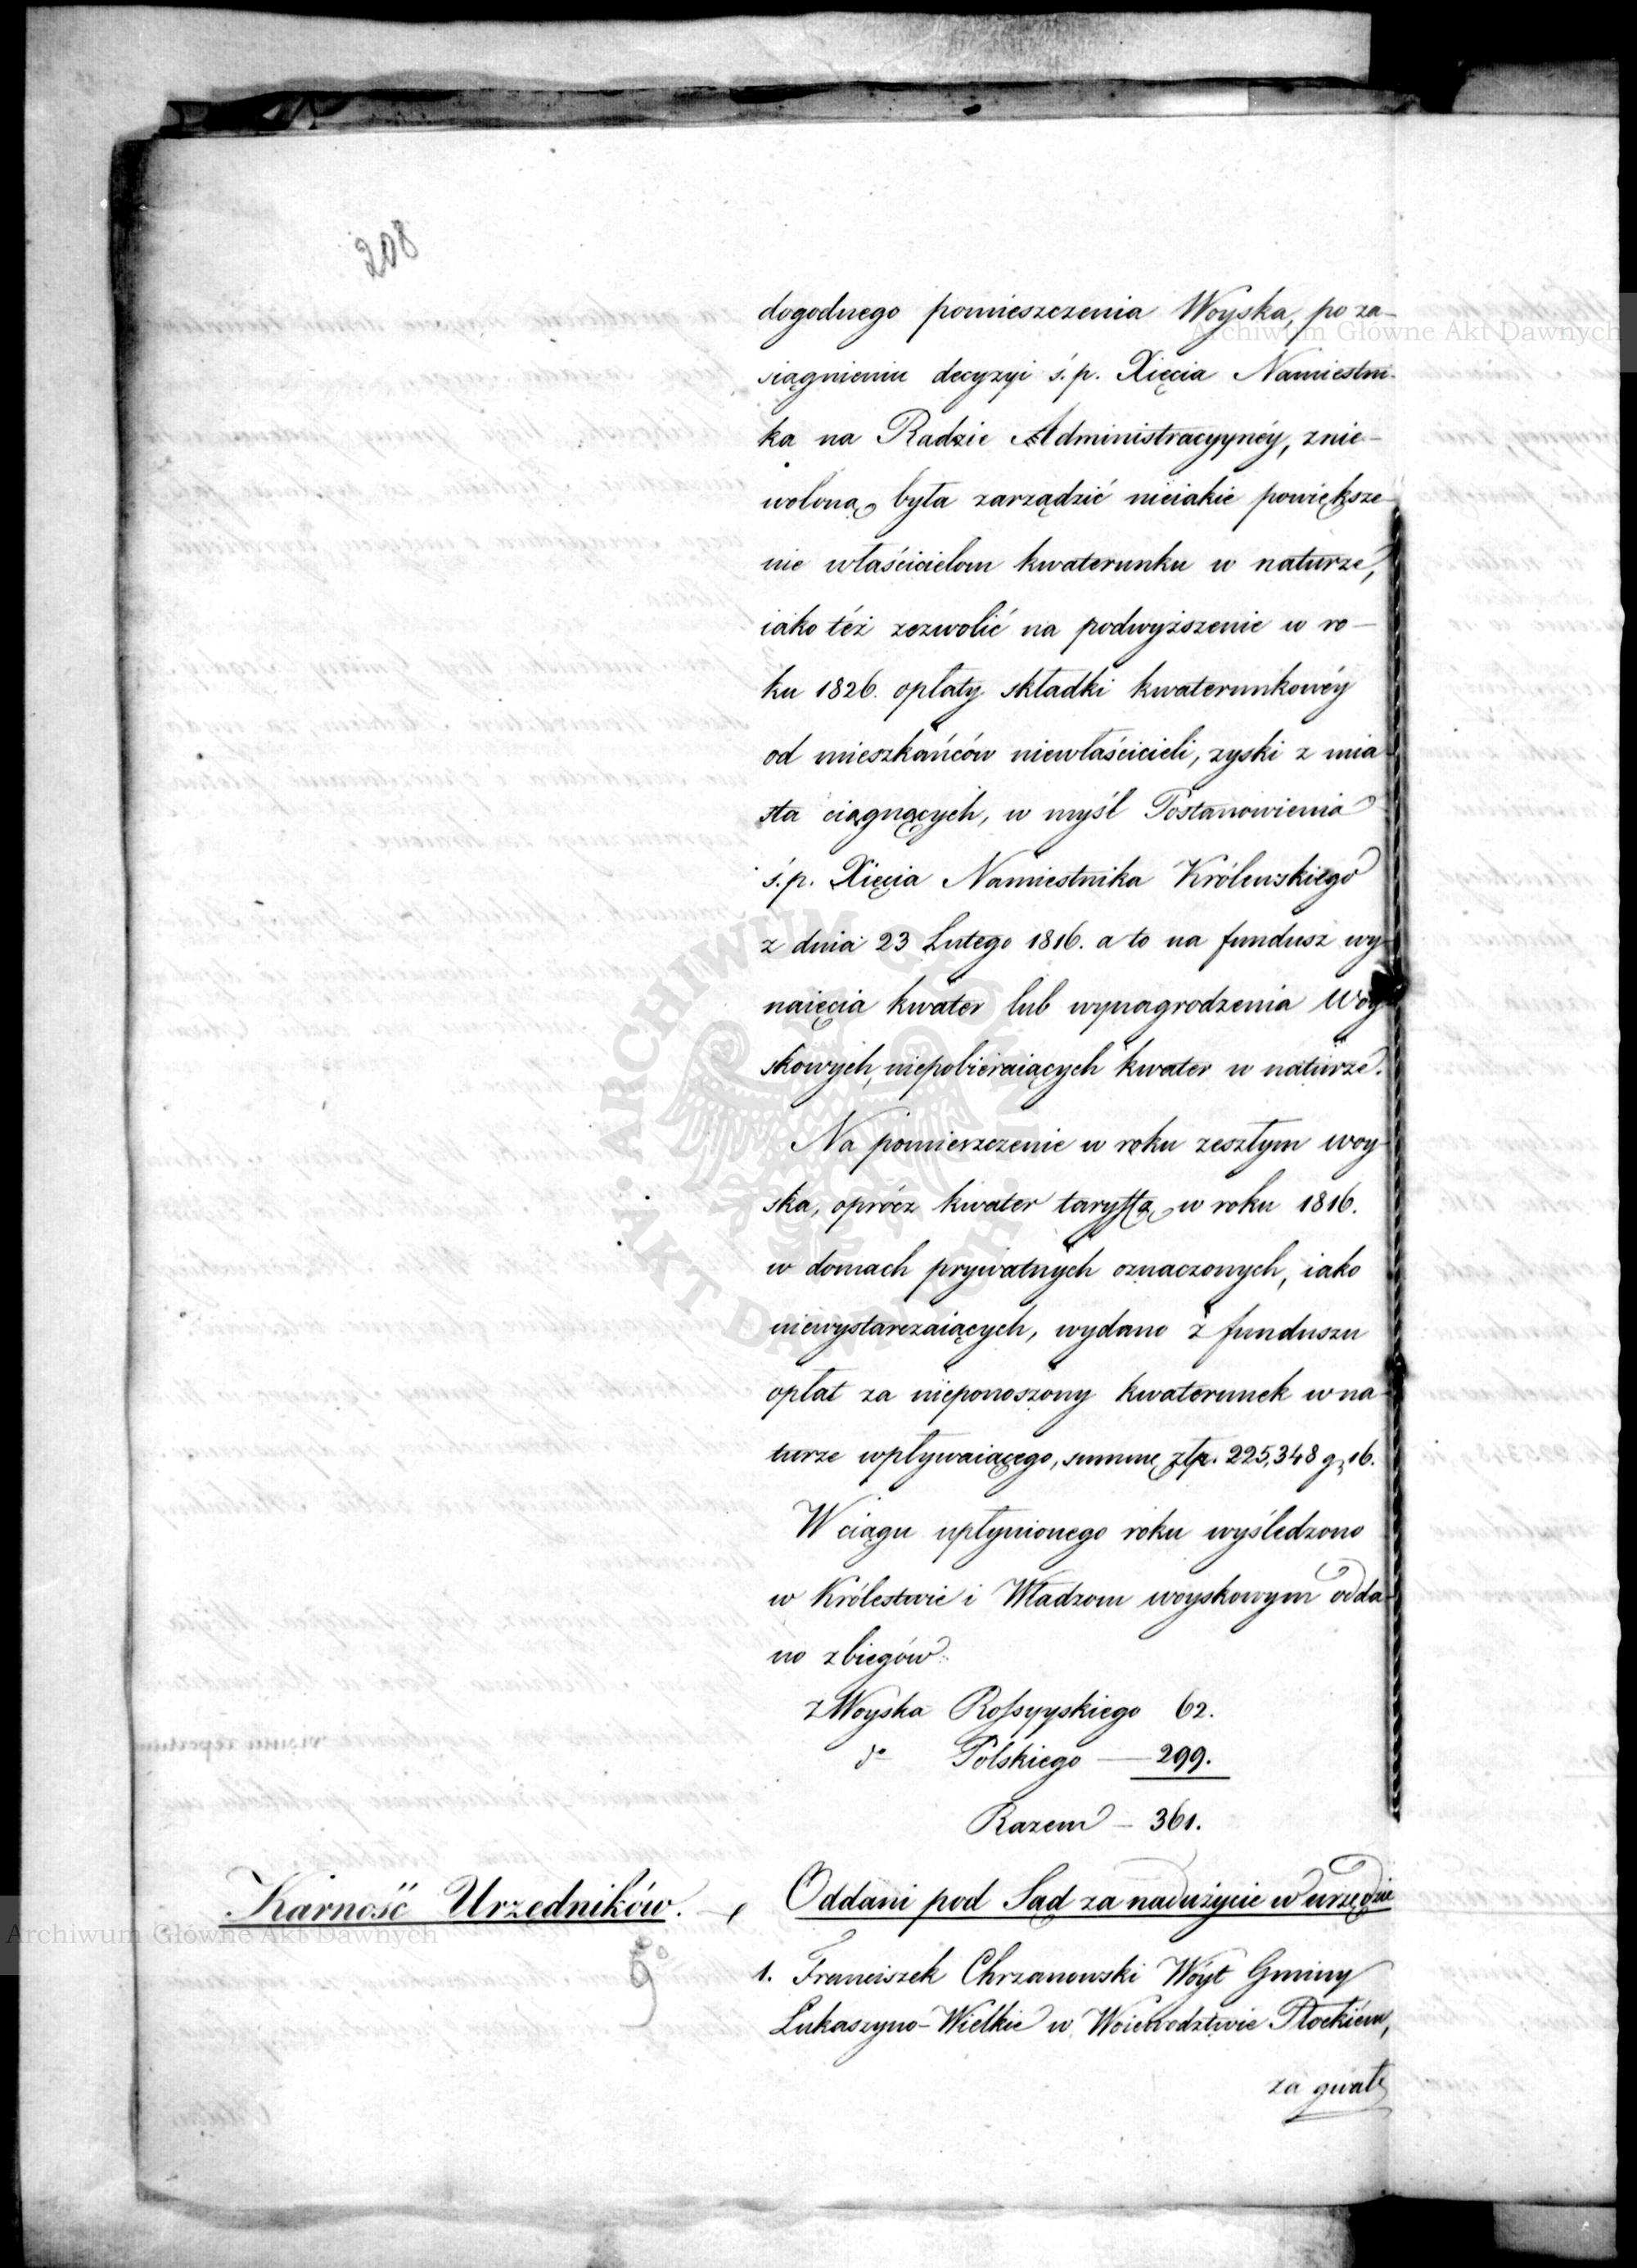 208
dogodnego pomieszczenia Woyska, po za-
siągnieniu decyzyi ś.p. Xięcia Namiestni-
ka na Radzie Administracyynéy, znie-
woloną była zarządzić nieiakie powiększe-
nie właścicielom kwaterunku w naturze,
iako téż zezwolić na podwyższenie w ro-
ku 1826. opłaty składki kwaterunkowéy
od mieszkańców niewłaścicieli, zyski z mia-
sta ciągnących, w myśl Postanowienia
ś.p. Xięcia Namiestnika Królewskiego
z dnia 23 Lutego 1816. a to na fundusz wy-
naięcia kwater lub wynagrodzenia Woy-
skowych, niepobieraiących kwater w naturze.
Na pomieszczenie w roku zeszłym woy-
ska, oprócz kwater taryffą w roku 1816.
w domach prywatnych oznaczonych, iako
niewystarczaiących, wydano z funduszu
opłat za nieponoszony kwaterunek w na-
turze wpływaiącego, summę złp. 225,348 g, 16.
W ciągu upłynionego roku wyśledzono
w Królestwie i Władzom woyskowym odda-
no zbiegów:
z Woyska Rossyyskiego 62.
do Polskiego — 299.
Razem — 361.
Karność Urzędników.
9o
Oddani pod Sąd za nadużycie w urzędzie
1. Franciszek Chrzanowski Wóyt Gminy
Łukaszyno-Wielkie w Woiewodztwie Płockiém,
za gwałt
Archiwum Główne Akt Dawnych
Archiwum Główne Akt Dawnych
ARCHIWUM GŁÓWNE AKT DAWNYCH